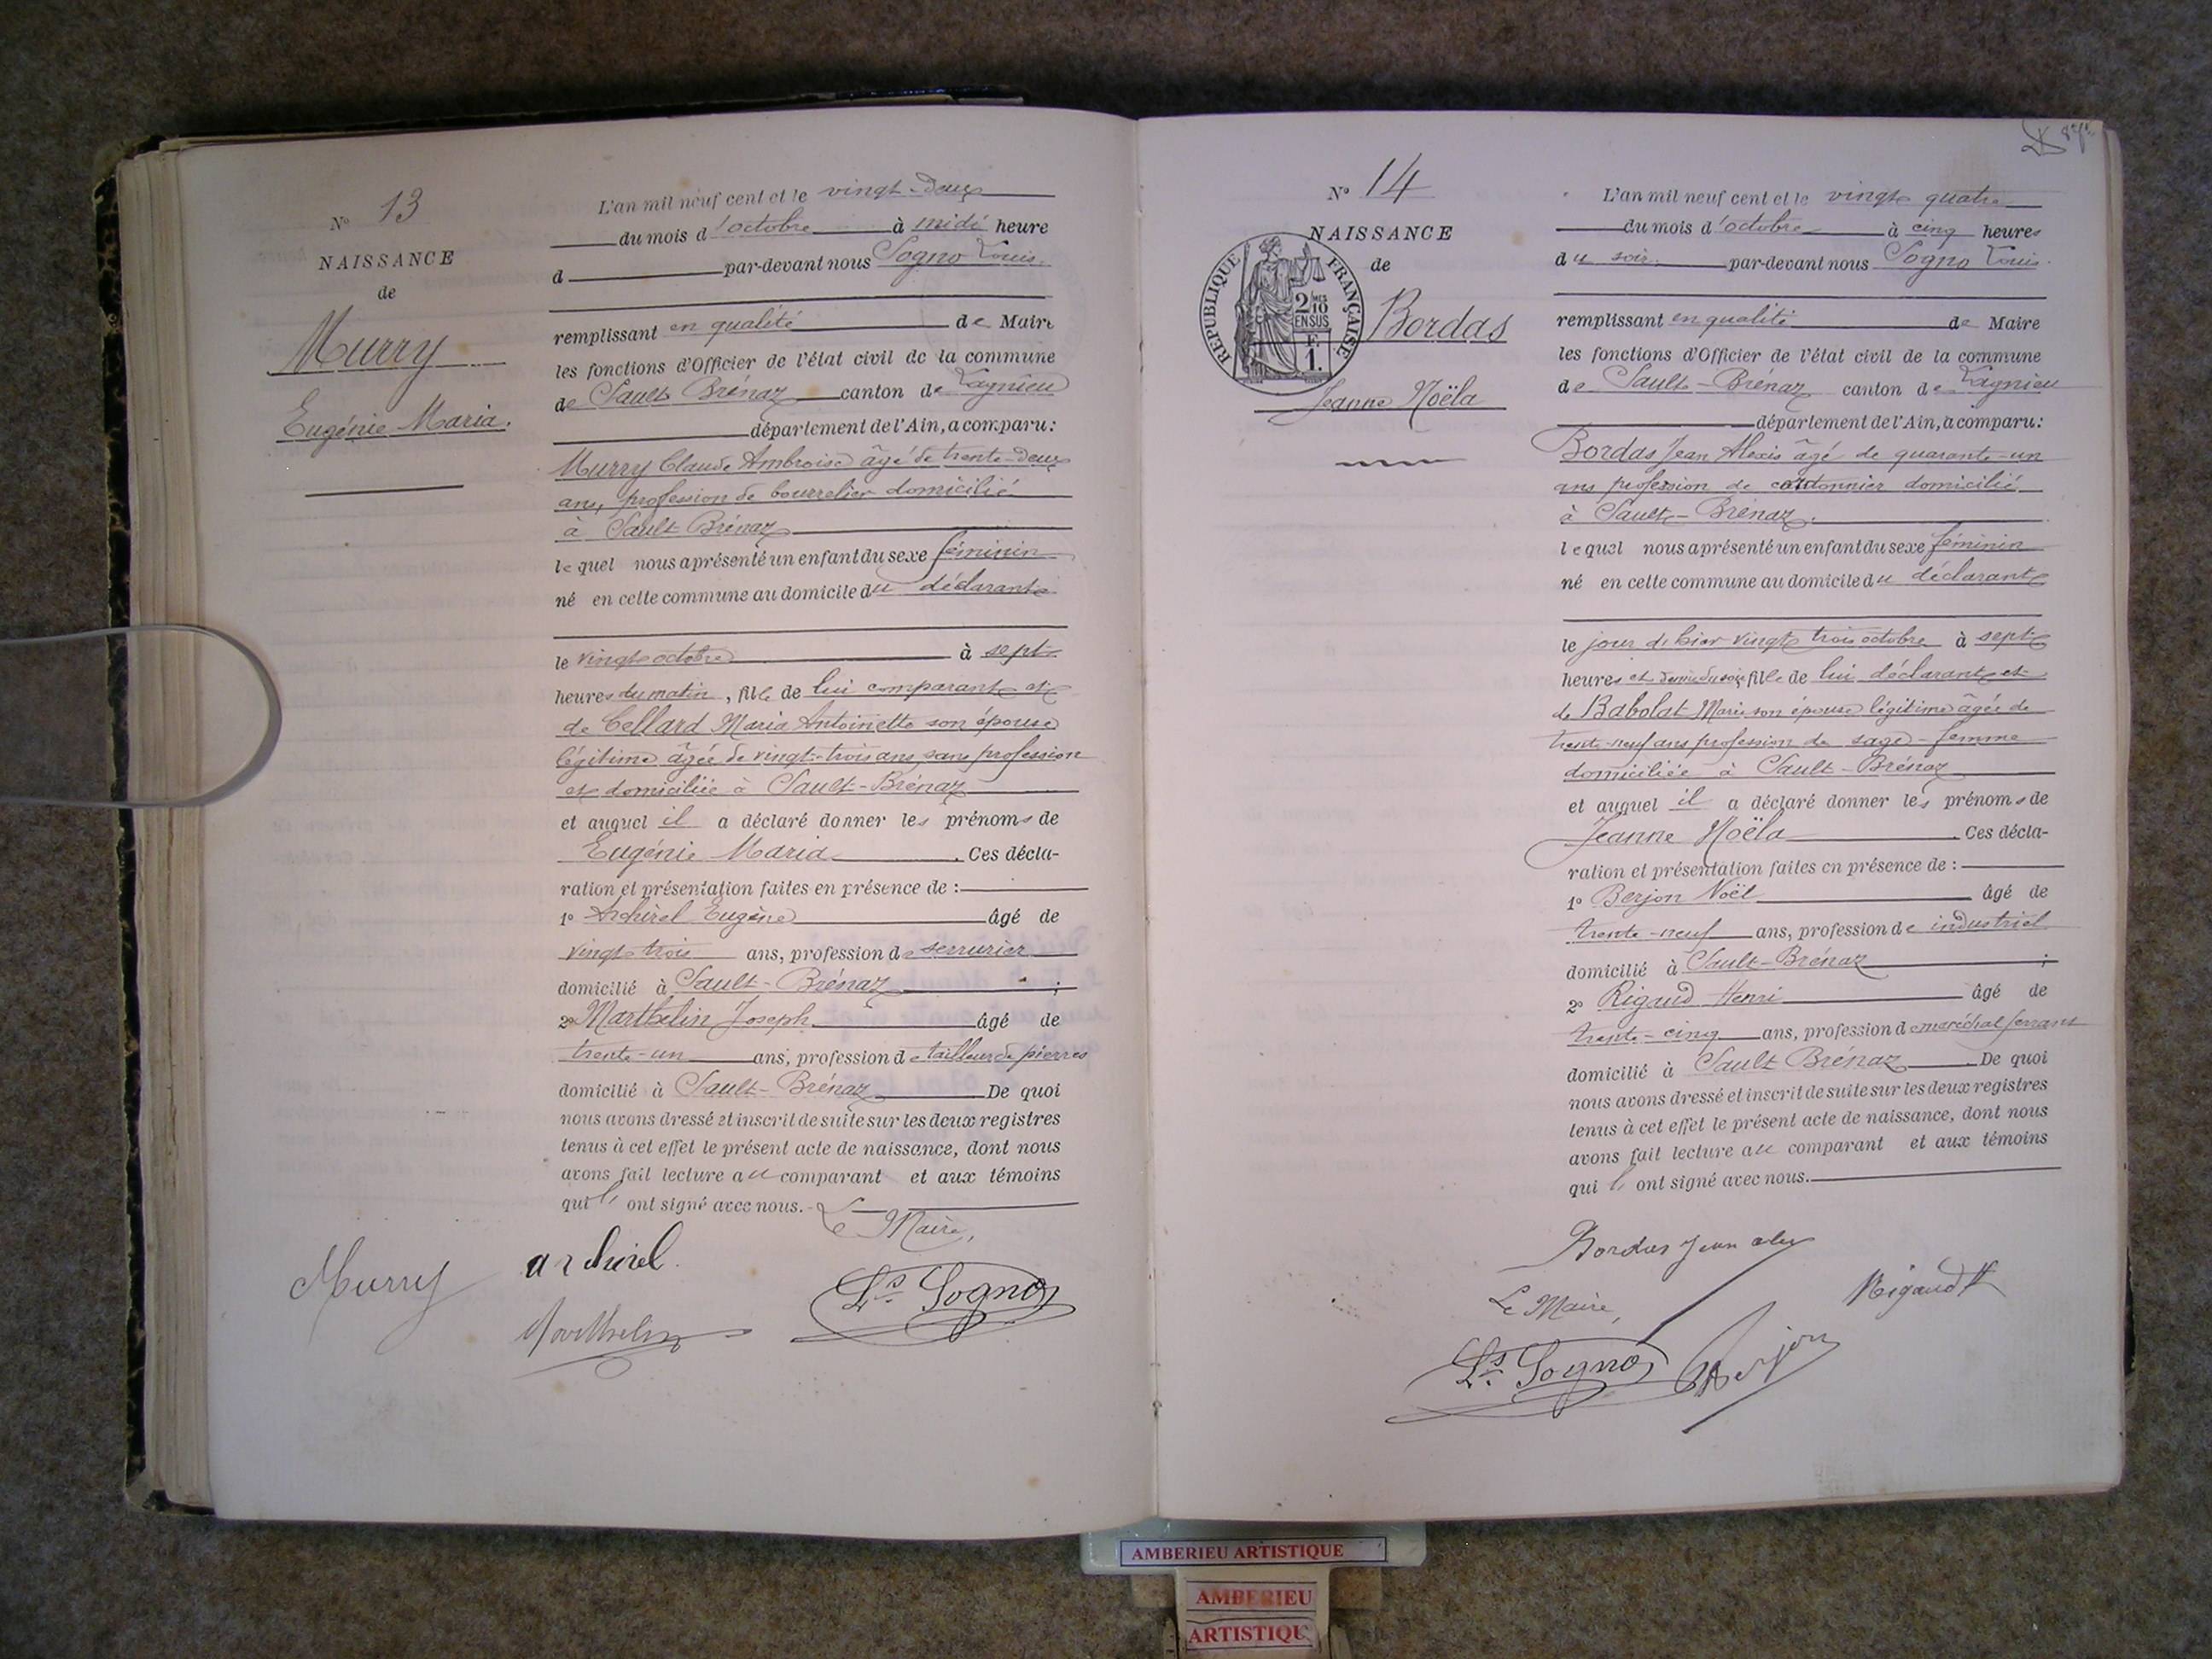 Nº 13
NAISSANCE
de
Murry
Eugénie Maria.
L'an mil neuf cent et le vingt-deux
du mois d'octobre à midi heure
d par-devant nous Sogno Louis.
remplissant en qualité de Maire
les fonctions d'Officier de l'état civil de la commune
de Sault Brénaz canton de Lagnieu
département de l'Ain, a comparu:
Murry Claude Ambroise âgé de trente-deux
ans, profession de bourrelier domicilié
à Sault-Brénaz
lequel nous a présenté un enfant du sexe féminin
né en cette commune au domicile du déclarant
le vingt octobre à sept
heures du matin, fille de lui comparant et
de Cellard Maria Antoinette son épouse
légitime âgée de vingt-trois ans sans profession
et domiciliée à Sault-Brénaz
et auquel il a déclaré donner les prénoms de
Eugénie Maria. Ces décla-
ration et présentation faites en présence de :
1º Archirel Eugène âgé de
vingt trois ans, profession de serrurier
domicilié à Sault-Brénaz ;
2º Marthelin Joseph âgé de
trente-un ans, profession de tailleur de pierres
domicilié à Sault-Brénaz De quoi
nous avons dressé et inscrit de suite sur les deux registres
tenus à cet effet le présent acte de naissance, dont nous
avons fait lecture au comparant et aux témoins
qui l' ont signé avec nous. - Le Maire,
Murry archirel
Marthelin Ls Sogno
Nº 14
NAISSANCE
de
RÉPUBLIQUE FRANÇAISE
2/10 MES
EN SUS
F.
1.
Bordas
Jeanne Noëla
L'an mil neuf cent et le vingt quatre
du mois d'octobre à cinq heures
du soir. par-devant nous Sogno Louis.
remplissant en qualité de Maire
les fonctions d'Officier de l'état civil de la commune
de Sault-Brénaz canton de Lagnieu
département de l'Ain, a comparu:
Bordas Jean Alexis âgé de quarante-un
ans profession de domicilié
à Sault-Brénaz.
lequel nous a présenté un enfant du sexe féminin
né en cette commune au domicile du déclarant
le jour d'hier vingt trois octobre à sept
heures et demie du soir fille de lui déclarant et
de Babolat Marie son épouse légitime âgée de
trente-neuf ans profession de sage-femme
domiciliée à Sault-Brénaz
et auquel il a déclaré donner les prénoms de
Jeanne Noëla. Ces décla-
ration et présentation faites en présence de :
1º Berjon Noël âgé de
trente-neuf ans, profession de industriel
domicilié à Sault-Brénaz ;
2º Rigaud Henri âgé de
trente-cinq ans, profession de maréchal ferrant
domicilié à Sault Brénaz De quoi
nous avons dressé et inscrit de suite sur les deux registres
tenus à cet effet le présent acte de naissance, dont nous
avons fait lecture au comparant et aux témoins
qui l' ont signé avec nous.
Bordas Jean alex
Le Maire, Rigaud H
Ls Sogno Berjon
AMBERIEU ARTISTIQUE
AMBERIEU
ARTISTIQU